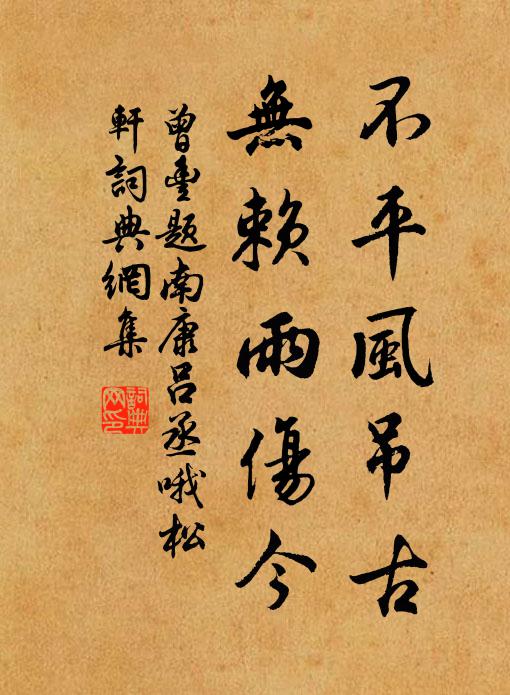 不平風吊古
無賴雨傷今
曾豊題南康呂丞哦松
軒詞典網集
詞典
网印